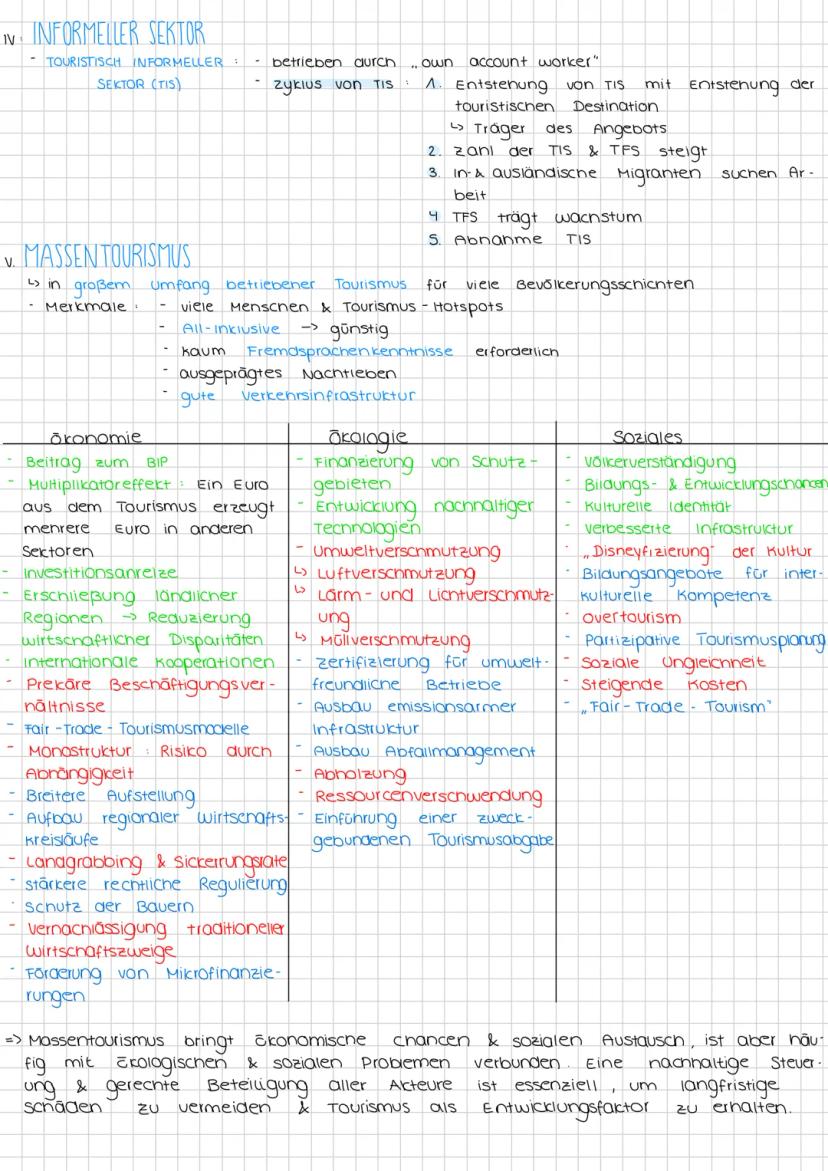 IV. INFORMELLER SEKTOR
- TOURISTISCH INFORMELLER : - betrieben durch „own account worker"
SEKTOR (TIS) - Zyklus von TIS : 1. Entstehung von TIS mit Entstehung der
touristischen Destination
↳ Träger des Angebots
2. Zahl der TIS & TFS steigt
3. In- & ausländische Migranten suchen Ar-
beit
4 TFS trägt Wachstum
5. Abnahme TIS
V. MASSENTOURISMUS
↳ in großem Umfang betriebener Tourismus für viele Bevölkerungsschichten
- Merkmale : - viele Menschen & Tourismus - Hotspots
- All-Inklusive → günstig
- kaum Fremdsprachenkenntnisse erforderlich
- ausgeprägtes Nachtleben
- gute Verkehrsinfrastruktur
Ökonomie
- Beitrag zum BIP
- Multiplikatoreffekt : Ein Euro
aus dem Tourismus erzeugt
mehrere Euro in anderen
Sektoren
- Investitionsanreize
- Erschließung ländlicher
Regionen → Reduzierung
wirtschaftlicher Disparitäten
- Internationale Kooperationen
- Prekäre Beschäftigungsver-
hältnisse
- Fair-Trade-Tourismusmodelle
- Monostruktur : Risiko durch
Abhängigkeit
- Breitere Aufstellung
- Aufbau regionaler Wirtschafts-
kreisläufe
- Landgrabbing & Sickerrungsrate
- stärkere rechtliche Regulierung
- Schutz der Bauern
- Vernachlässigung traditioneller
Wirtschaftszweige
- Förderung von Mikrofinanzie-
rungen
Ökologie
- Finanzierung von Schutz-
gebieten
- Entwicklung nachhaltiger
Technologien
- Umweltverschmutzung
↳ Luftverschmutzung
↳ Lärm- und Lichtverschmutz-
ung
↳ Müllverschmutzung
- Zertifizierung für umwelt-
freundliche Betriebe
- Ausbau emissionsarmer
Infrastruktur
- Ausbau Abfallmanagement
- Abholzung
- Ressourcenverschwendung
- Einführung einer zweck-
gebundenen Tourismusabgabe
Soziales
- Völkerverständigung
- Bildungs- & Entwicklungschancen
- Kulturelle Identität
- Verbesserte Infrastruktur
- „Disneyfizierung" der Kultur
- Bildungsangebote für inter-
kulturelle Kompetenz
- Overtourism
- Partizipative Tourismusplanung
- Soziale Ungleichheit
- Steigende Kosten
- „Fair-Trade-Tourism"
=> Massentourismus bringt ökonomische Chancen & sozialen Austausch, ist aber häu-
fig mit ökologischen & sozialen Problemen verbunden. Eine nachhaltige Steuer-
ung & gerechte Beteiligung aller Akteure ist essenziell, um langfristige
Schäden zu vermeiden & Tourismus als Entwicklungsfaktor zu erhalten.